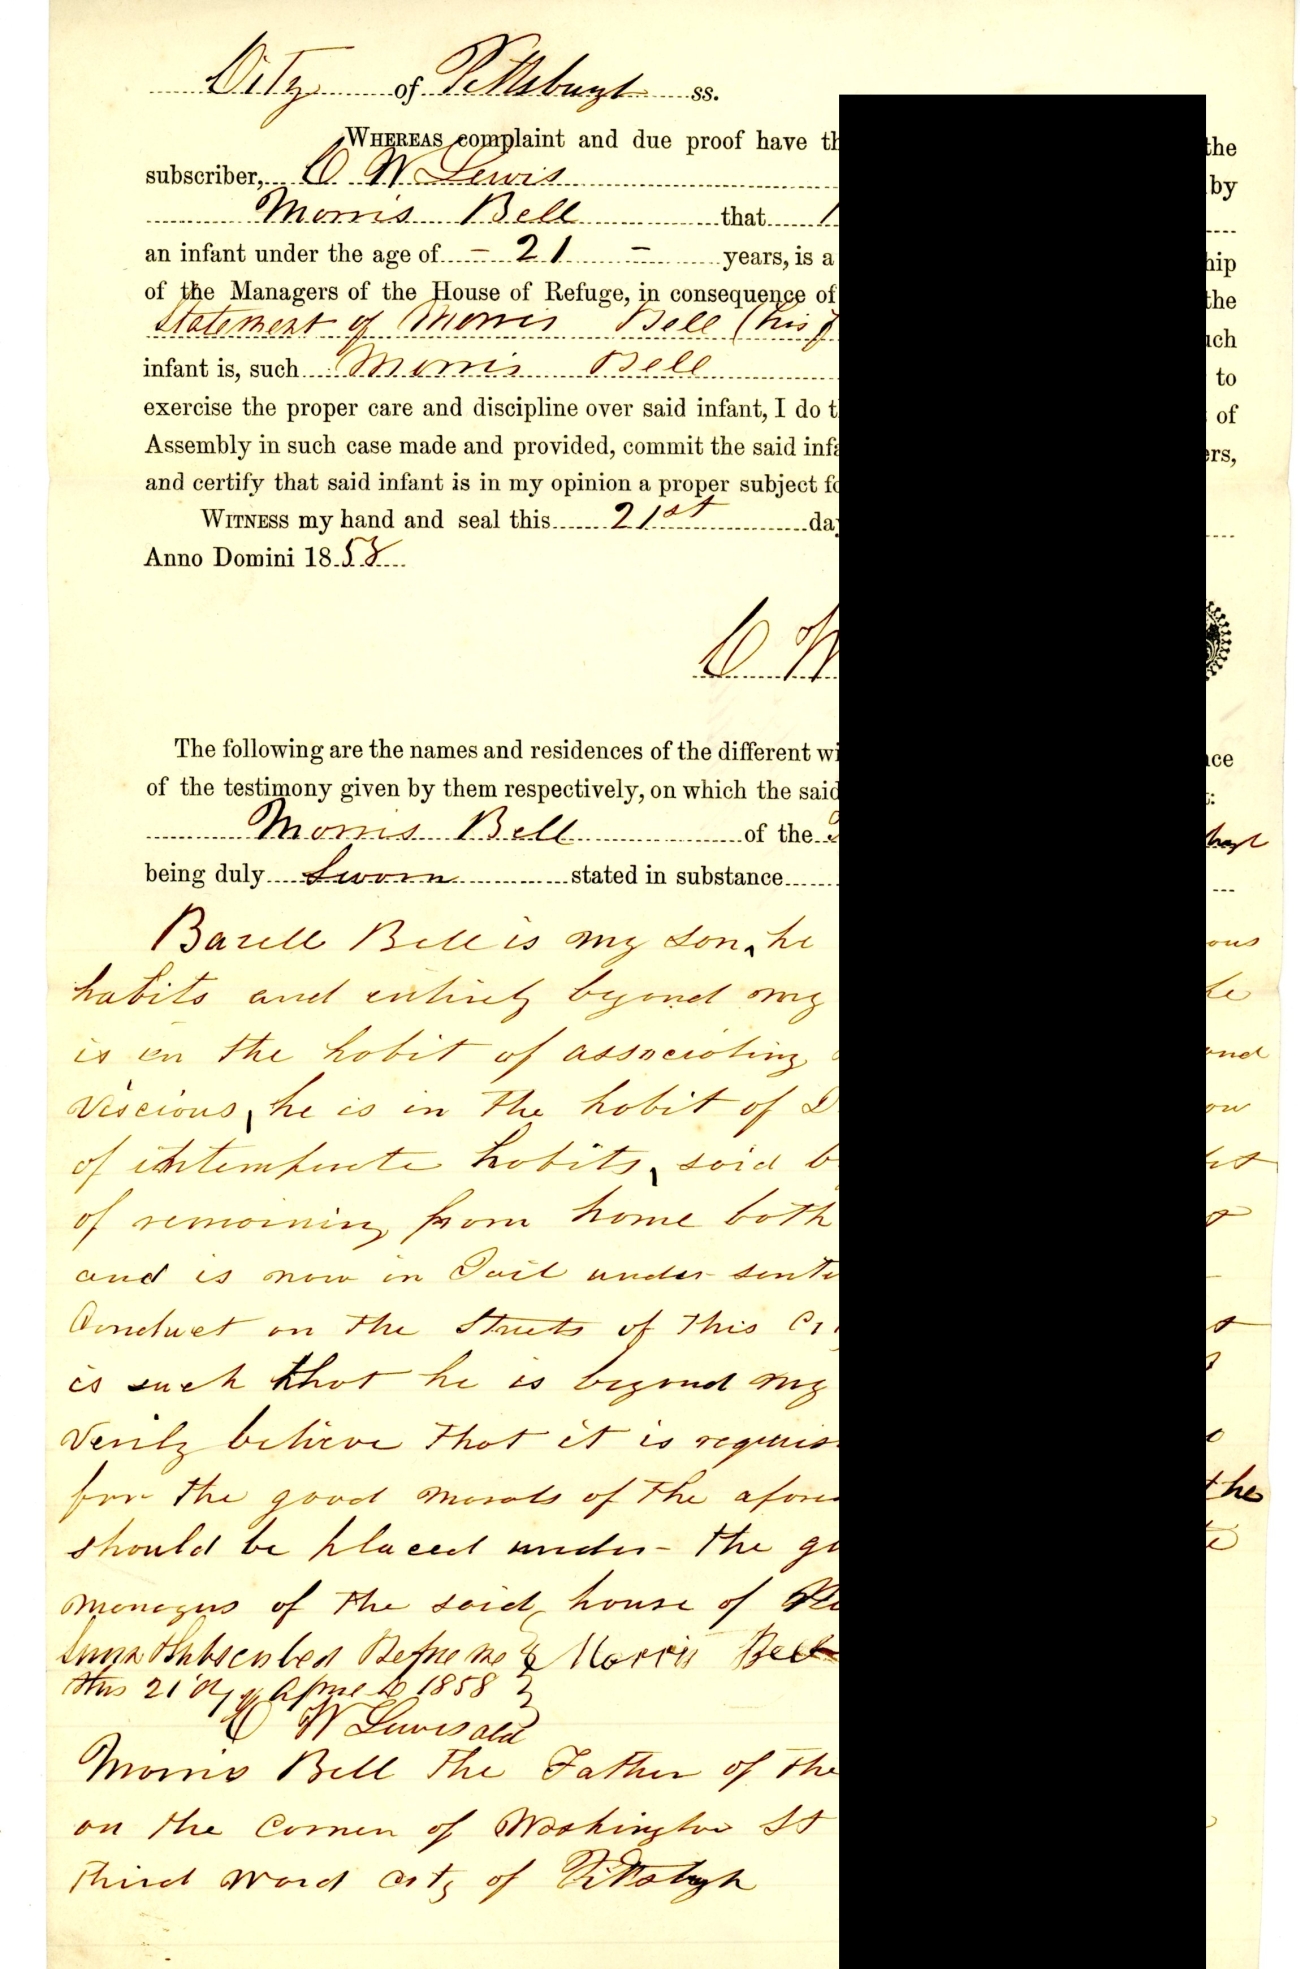 City of Pittsburgh ss.
WHEREAS complaint and due proof have the
subscriber, C W Lewis by
Morris Bell that
an infant under the age of - 21 - years, is a hip
of the Managers of the House of Refuge, in consequence of the
Statement of Morris Bell (his uch
infant is, such Morris Bell to
exercise the proper care and discipline over said infant, I do of
Assembly in such case made and provided, commit the said ers,
and certify that said infant is in my opinion a proper subject
WITNESS my hand and seal this 21st
Anno Domini 1858
C W
The following are the names and residences of the different
of the testimony given by them respectively, on which the said
Morris Bell of the
being duly Sworn stated in substance
Bazell Bell is my son, he
habits and entirely beyond my
is in the habit of associating
viscious, he is in the habit of
of intemperate habits, said
of remaining from home both
and is now in Jail under
Conduct on the Streets of this
is such that he is beyond my
verily believe that it is
for the good morals of the the
should be placed under the
managers of the said house of
Sworn & Subscribed Before me Morris Bell
this 21 dy of Aprile 1858
C W Lewis ald
Morris Bell the Father of the
on the corner of Washington St
third Ward City of Pittsbgh